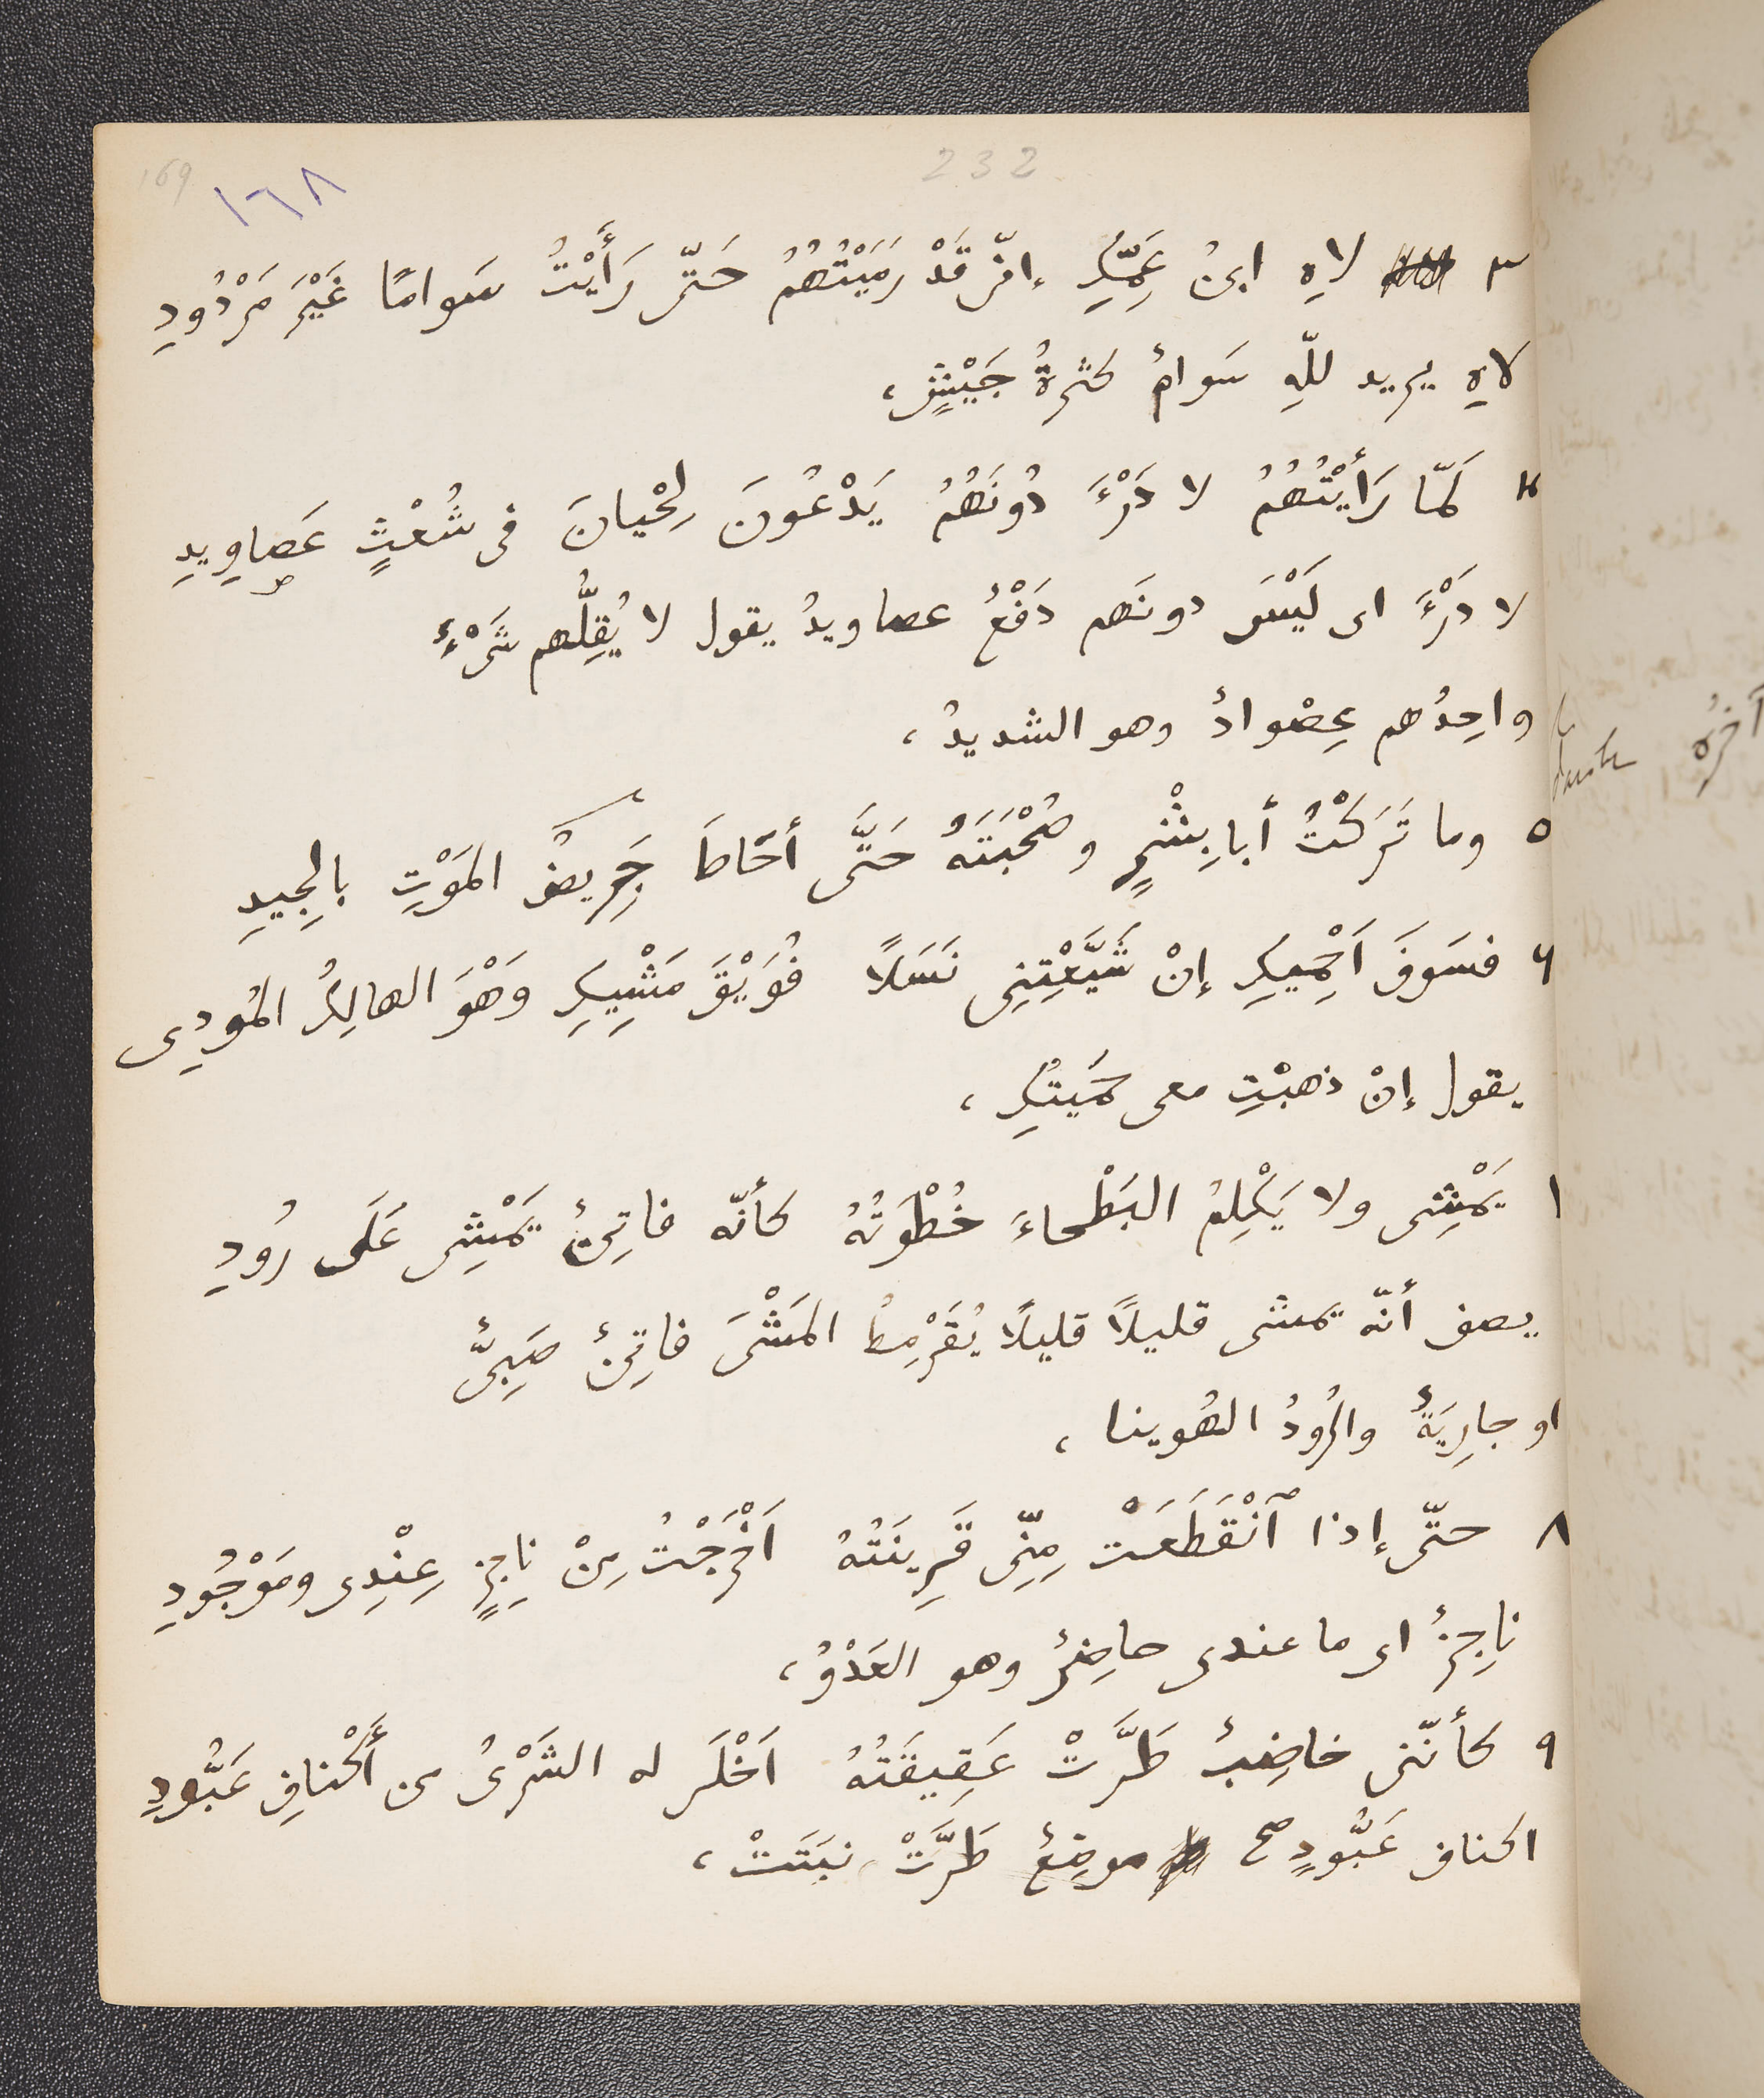 169
١٦٨
232
٣ لاهِ ابنُ عَمِّكِ إنّى قَدْ رَمَيْتُهُمُ حَتّى رَأَيْتُ سَوامًا غَيْرَ مَرْدُودِ
لاهِ يريد للّهِ سَوامٌ كثرةُ جَيْشٍ،
٤ لَمّا رَأَيْتُهُمُ لا دَرْءَ دُونَهُمُ يَدْعُونَ لِحْيانَ فى شُعْثٍ عَصاوِيدِ
لا دَرْءَ اى لَيْسَ دونَهم دَفْعٌ عصاويدُ يقول لا يُقِلُّهم شَىْءٌ
واحِدُهم عِصْوادٌ وهو الشديدُ،
٥ وما تَرَكْتُ أبا بِشْرٍ وصُحْبَتَهُ حَتَّى أحَاطَ جَرِيضُ المَوْتِ بالجِيدِ
٦ فسَوفَ اَحْمِيكِ إنْ شَيَّعْتِنِى نَسَلاً فُوَيْقَ مَشْيِكِ وَهْوَ الهالِكُ المُودِى
يقول إنْ ذهبْتِ معى حَمَيتُكِ،
١ يَمْشِى ولا يَكْلِمُ البَطْحاءَ خُطْوَتُهُ كأنّه فاتِئٌ يَمْشِى عَلَى رُودِ
يصف أنّه يمشى قليلاً قليلًا يُقَرْمِطُ المَشْىَ فاتِئٌ صَبِىٌّ
او جارِيَةٌ والرُودُ الهُوينا،
٨ حتّى إذا ٱنْقَطَعَتْ مِنِّى قَرِينَتُهُ اَخْرَجْتُ مِنْ ناجِزٍ عِنْدِى ومَوْجُودِ
ناجِزٌ اى ما عندى حاضِرٌ وهو العَدْوُ،
٩ كأنّنى خاضِبٌ طَرَّتْ عَقِيقَتُهُ اَخْلَى له الشَرْىُ من أكْنافِ عَبُّودِ
اكناف عَبُّودٍ صح موضِعٌ طَرَّتْ نبَتَتْ،
آخرُه